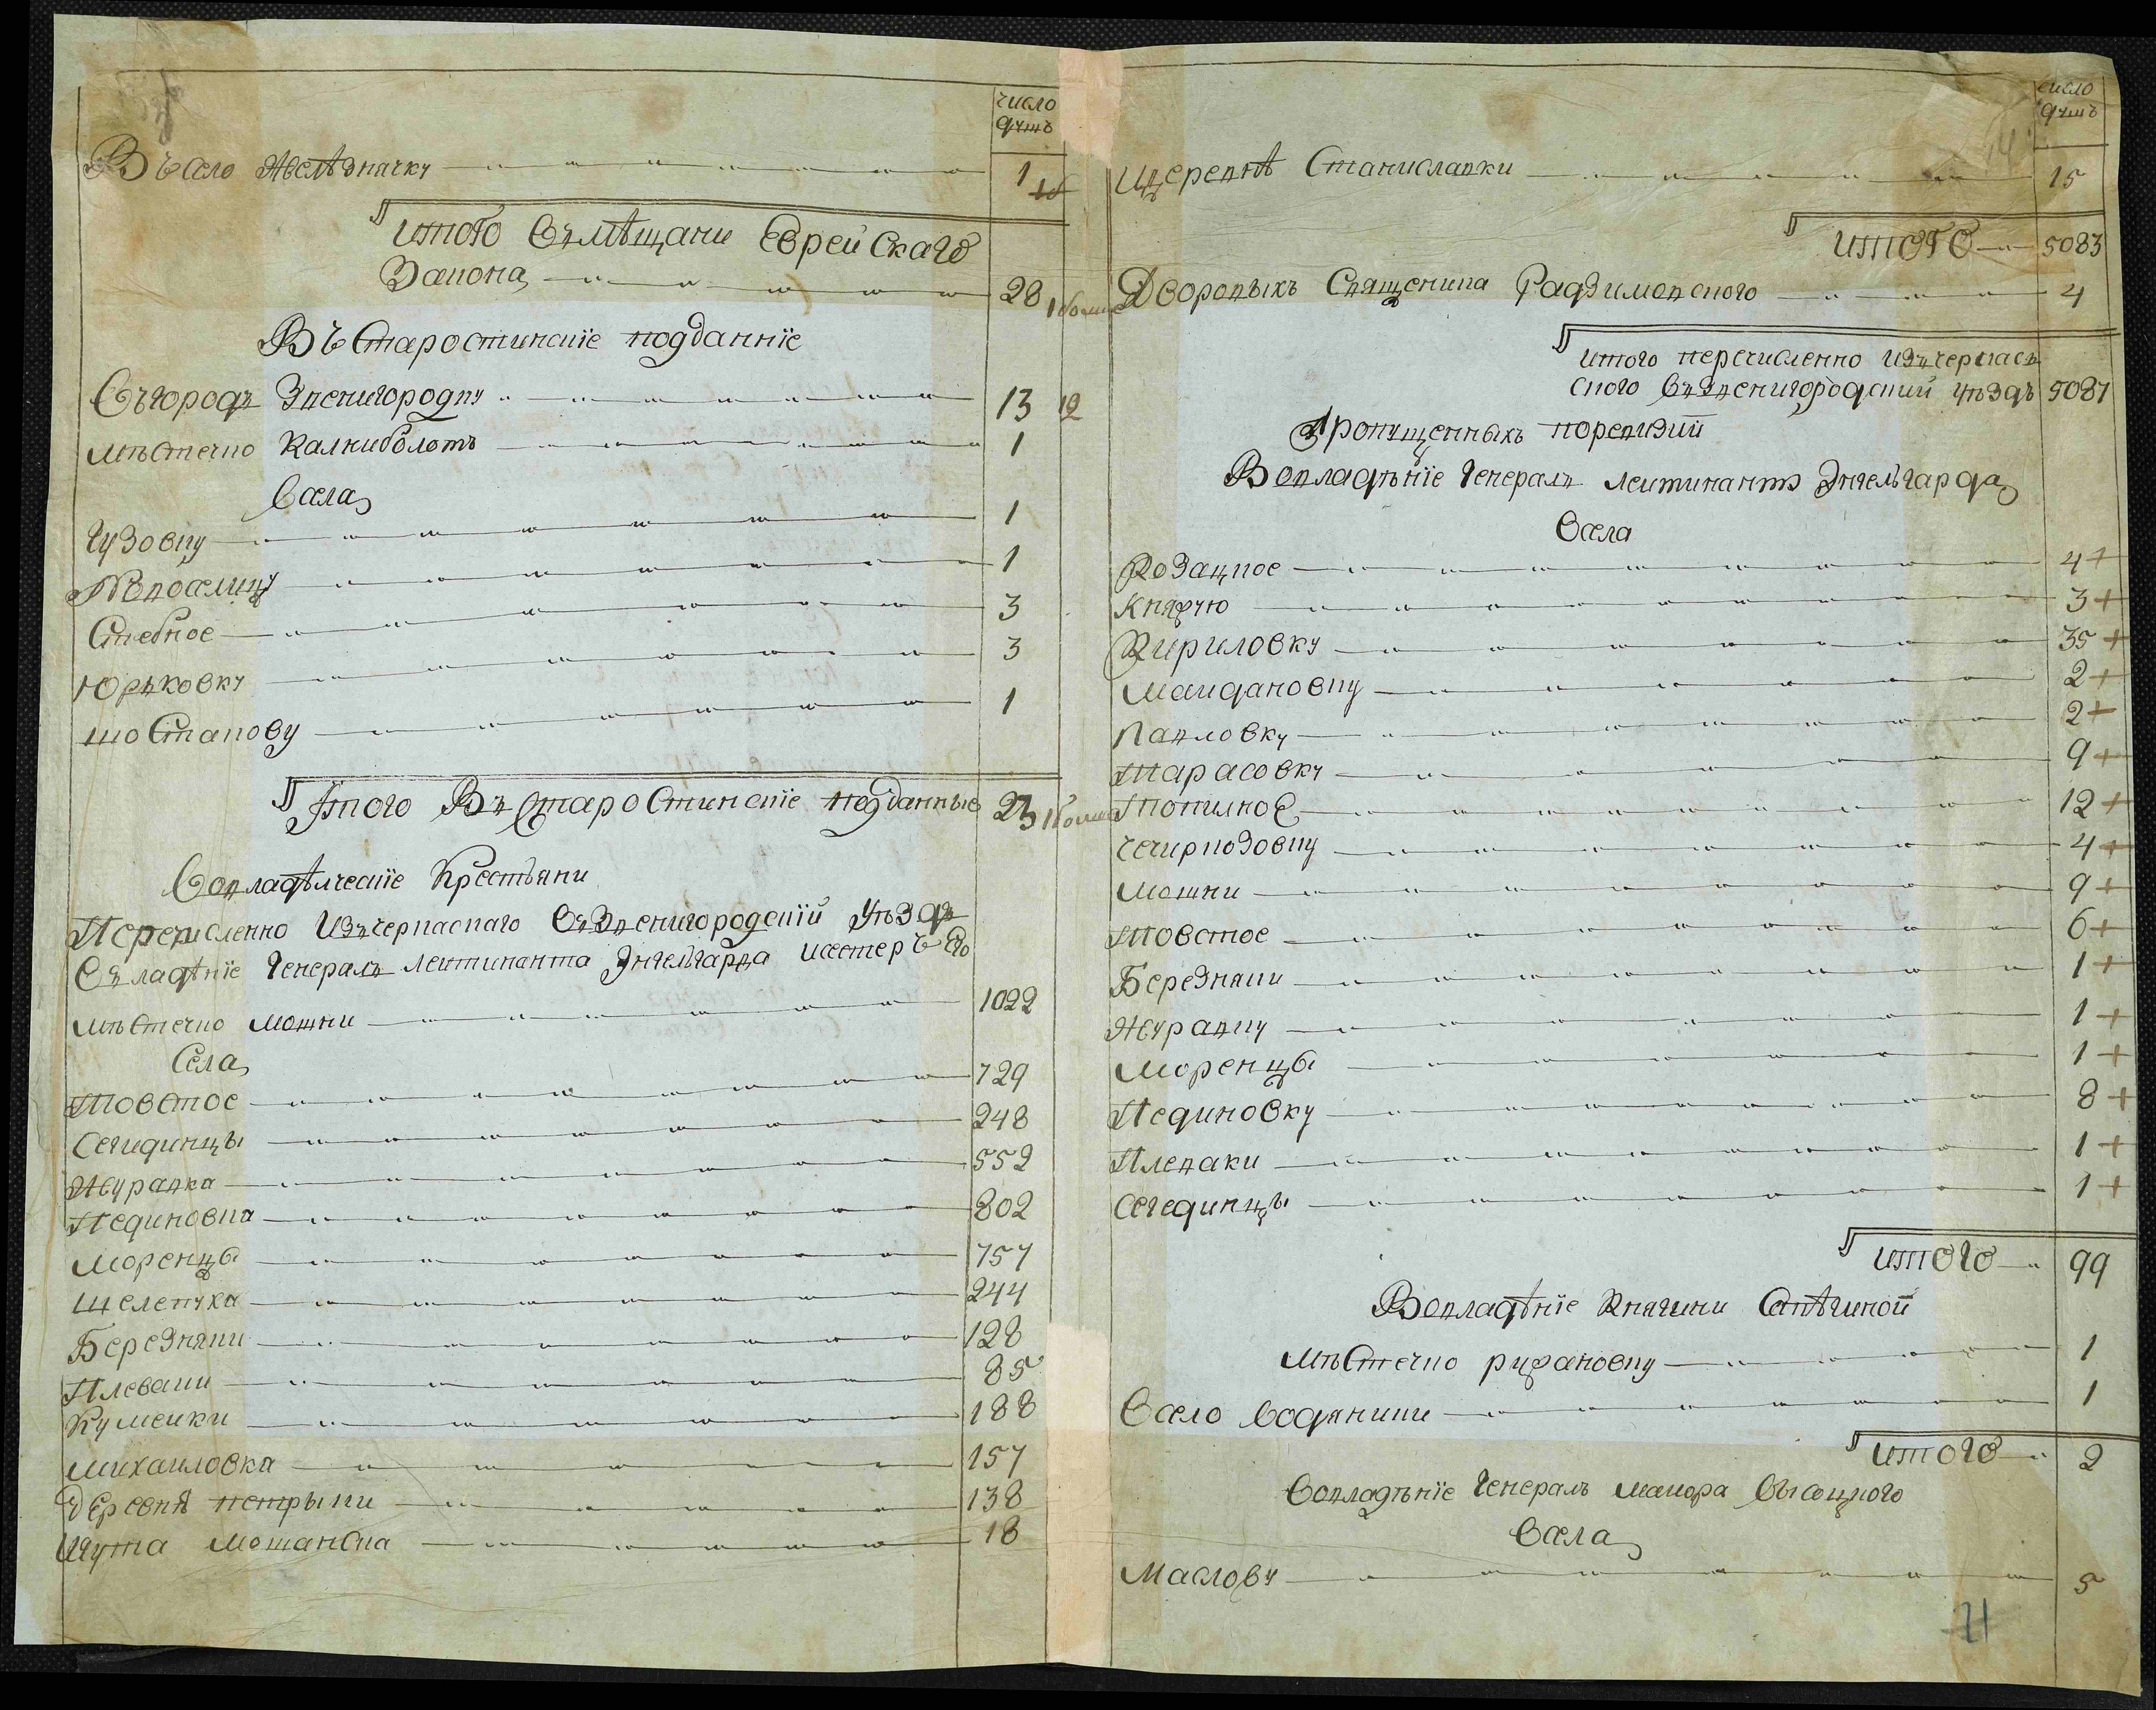 число
душъ
Въ село Желѣзнячку 1
итого въ мѣщани Еврейскаго
Закона 28
Въ Старостинскіе подданніе
Въ городъ Звенигородку 13 12
мѣстечко Калниболотъ 1
Села
Гузовку 1
Неволицу 1
Стебное 3
Юрьковку 3
шостакову 1
Итого Въ Старостинскіе подданные 23
Во владѣлческіе Крестьяни
Перечисленно Изъ черкаскаго Въ Звенигородскій уѣздъ
Въ ладѣніе Генералъ леитинанта Энгельгарда
мѣстечко мошни 1022
Села
Товстое 729
Сегидинцы 248
Журавка 552
Пединовка 802
моренцы 757
шелепуха 244
Березняки 128
Плеваки 85
Кумеики 188
михаиловка 157
деревня петрыки 138
Гута мошанска 18
число
душъ
Церевнѣ Станиславки 15
итого 5083
Дворовыхъ Священика Радзимовского 4
итого перечисленно Изъ черкасъ
ского въ Звенигородский уѣздъ 5087
Пропущенныхъ поревизий
Во владѣніе Генералъ леитинантэ Энгельгарда
Села
Козацкое 4+
Княжую 3+
Кириловку 35+
маидановку 2+
Павловку 2+
Тарасовку 9+
Топилное 12+
чечирнозовку 4+
мошни 9+
Товстое 6+
Березняки 1+
Журавку 1+
Моренцы 1+
Пединовку 8+
Плеваки 1+
Сегединцы 1+
итого 99
Во владѣніе Княгини Сапѣгиной
мѣстечко рижановку 1
Село водяники 1
итого 2
Во владѣніе Генералъ маиора высоцкого
Села
Маслову 5
21